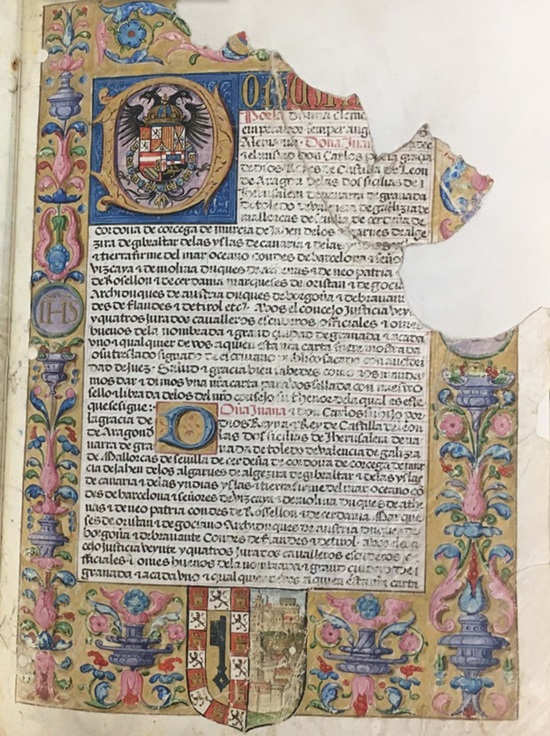 Por la divina cleme
emperador semper aug
Alemania. Dona Juana
el mismo don Carlos por la gracia
de dios Reyes de Castilla de Leon
de Aragon de las dos sicilias de
Jherusalem de navarra de granada
de toledo de valencia de galizia de
mallorcas de sevilla de cerdeña de
cordova de corcega de murcia de Jahen de los algarves de alge
zira de gibraltar de las yslas de canaria de las yndias
e tierra firme del mar oceano condes de barcelona e seño
vizcaya e de molina duques de athenas e de neo patria
de Rosellon e de cerdania marqueses de oristan e de gocia
Archiduques de austria duques de borgoña e de bravan
des de flandes e de tirol etc. A vos el concejo Justicia veyn
y quatros jurados cavalleros escuderos officiales e omes
buenos de la nombrada e gran ciudad de granada e a cada
uno e qual quier de vos a quien esta nra carta fuere mostrada
o su traslado signado de escrivano
dad de Juez. Salud e gracia bien sabedes como
mos dar e dimos una nra carta para vos sellada con nuestro
sello e librada de los del nro consejo su thenor de la qual es este
que se sigue:
Dona Juana e don Carlos su hijo por
la gracia de dios Reyna e Rey de Castilla de Leon
de Aragon de las dos sicilias de Jherusalem de na
varra de granada de toledo de valencia de galizia
de Mallorcas de sevilla de cerdeña de cordova de corcega de mur
cia de Jahen de los algarbes de algezira de gibraltar e de las yslas
de canaria e de las yndias yslas e tierra firme del mar oceano co
des de barcelona e señores de vizcaya e de molina duques de athe
nas e de neo patria condes de Rosellon e de cerdania. Marque
ses de oristan e de gociano Archiduques de austria duques de
borgoña e de bravante Condes de flandes e de tirol. A vos el co
cejo justicia veynte y quatros jurados cavalleros escuderos
fficiales e omes buenos de la nombrada e grand ciudad de
granada e a cada uno e qual quier de vos a quien esta nra carta
IHS